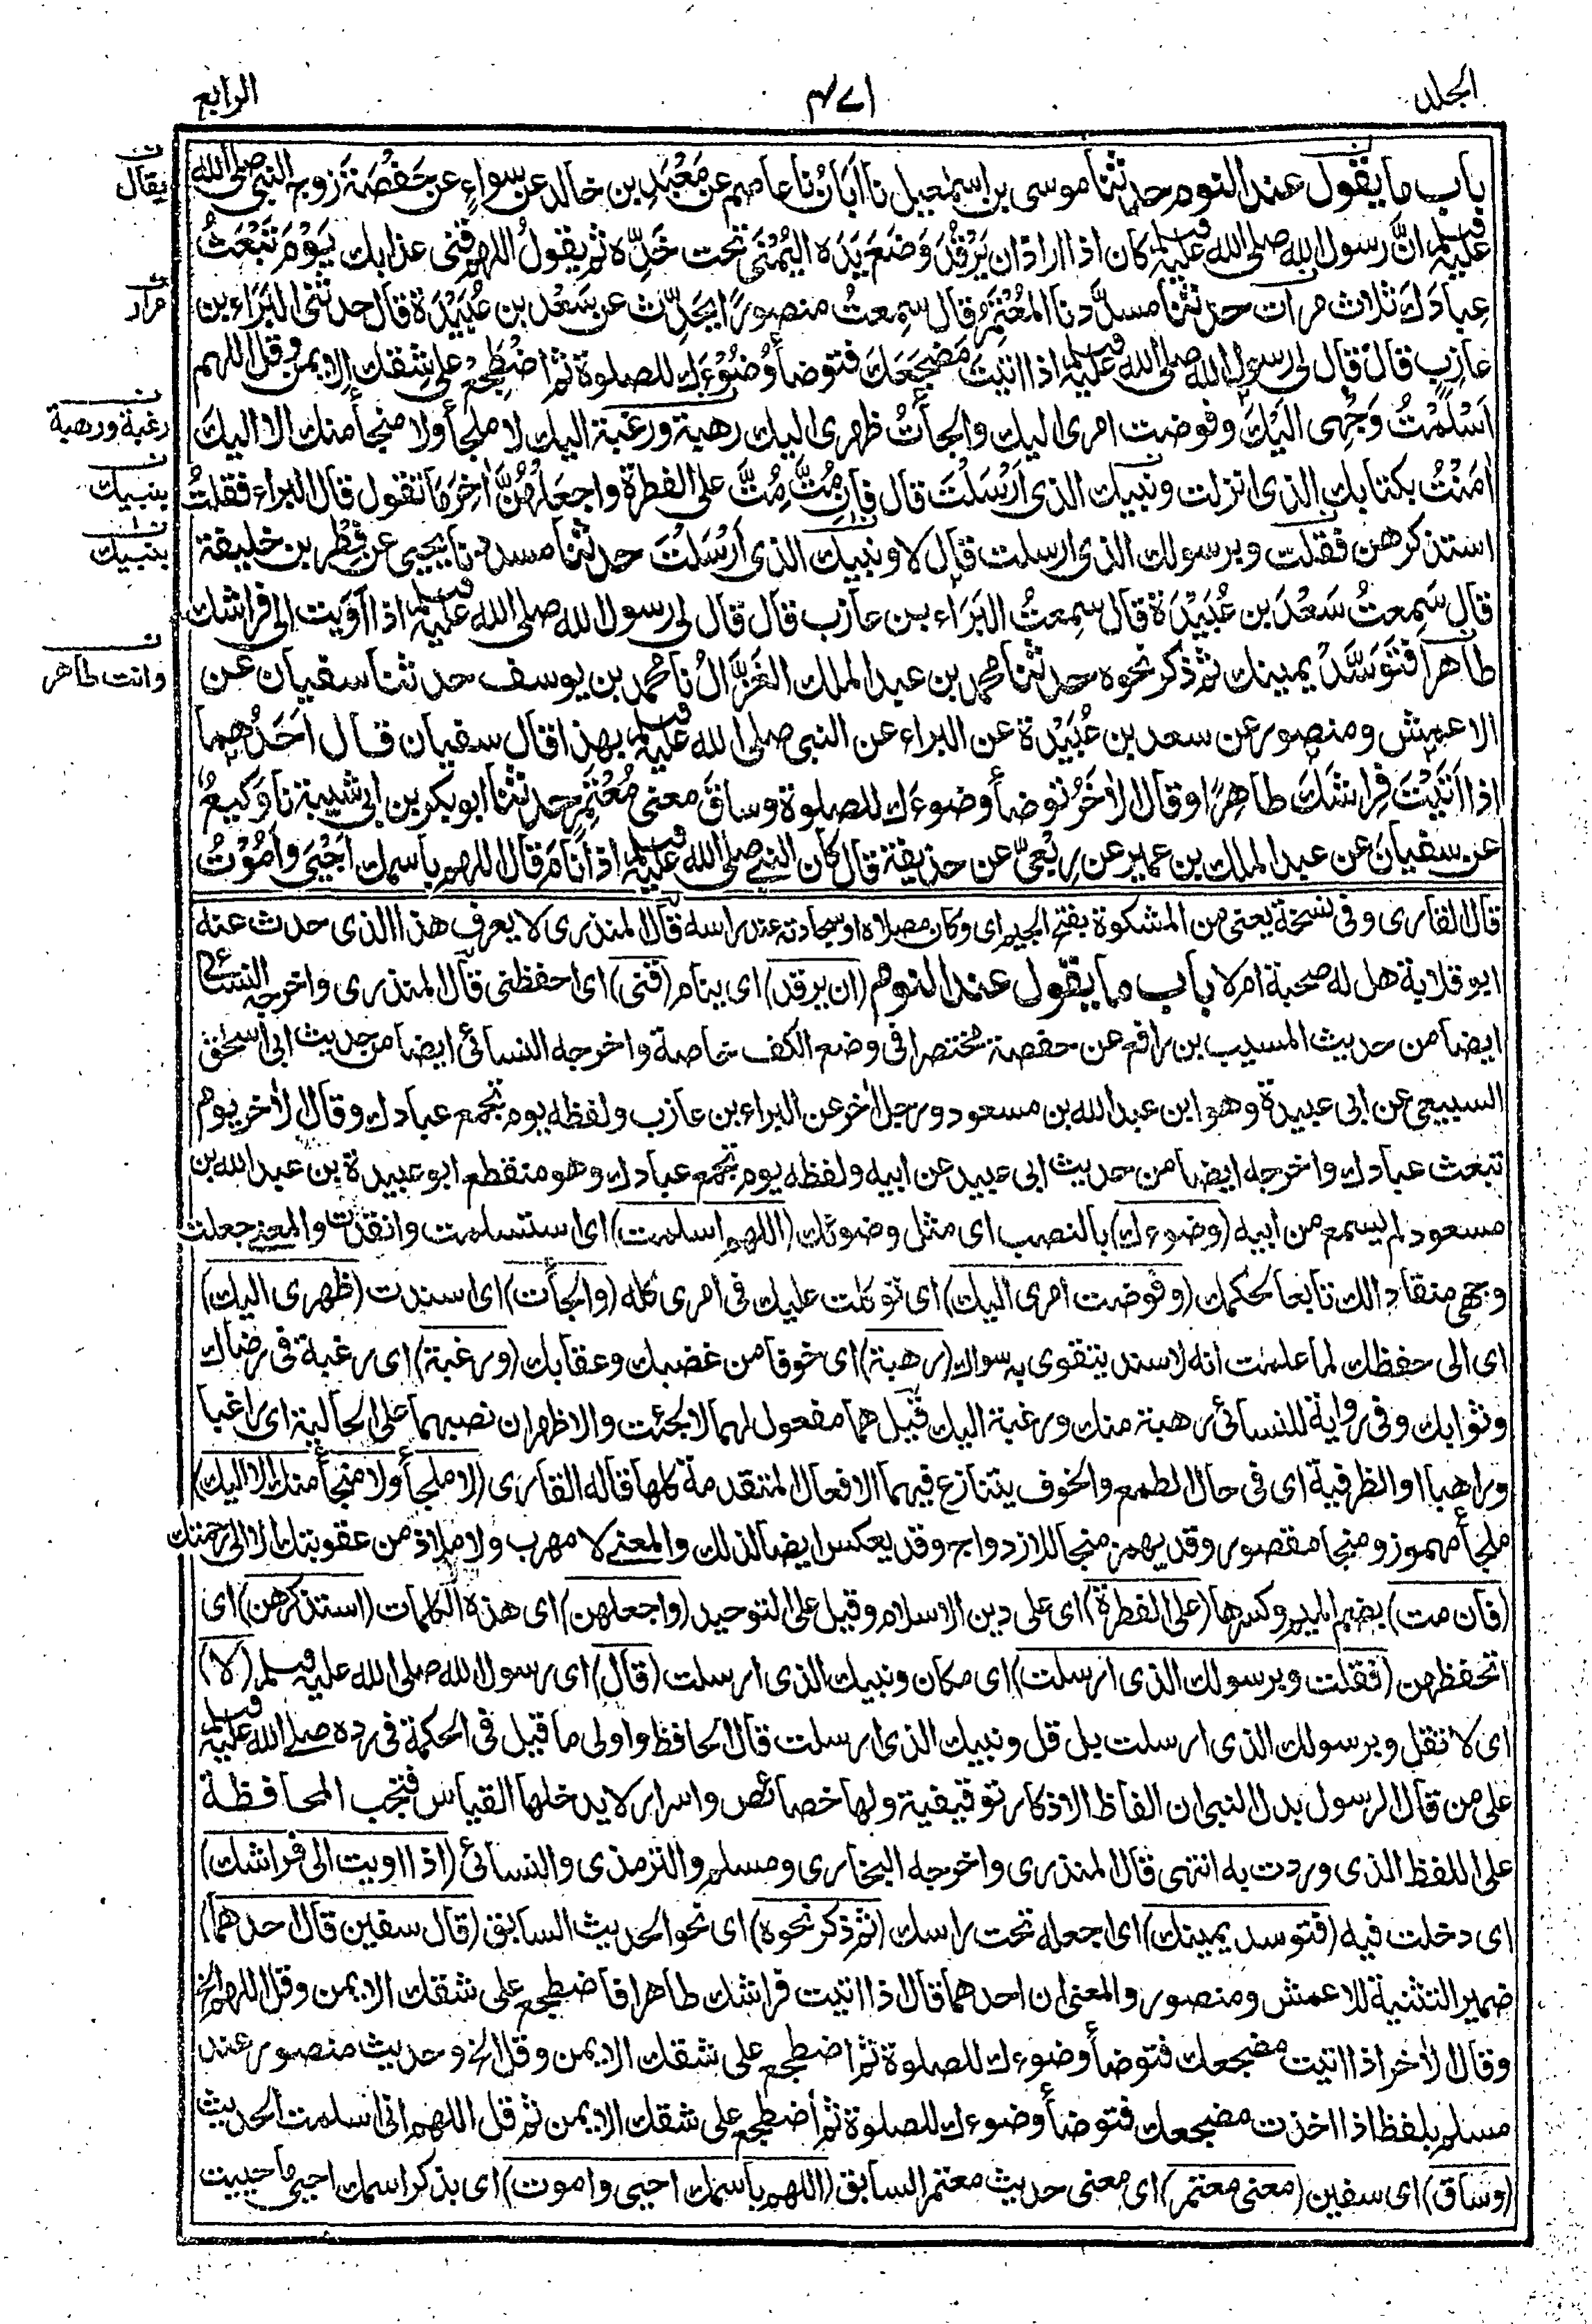 المجلد
٤٧١
الرابع
باب ما يقول عند النوم حدثنا موسى بن اسمعيل نا ابَانُ نا عاصم عن مَعْبَدِ بن خالد عن سواءٍ عن حَفْصَةَ زوج النبى صلى الله
عليه وسلم انَّ رسول الله صلى الله عليه وسلم كان اذا اراد ان يَرْقُدَ وَضَعَ يَدَه اليُمْنَى تحت خَدِّه ثم يقولُ اللهم قنى عذابك يَوْمَ تَبْعَثُ
عِبادَكَ ثلاث مرات حدثنا مسدَّد نا المُعْتَمِرُ قال سمعتُ منصورًا يُحَدِّث عن سَعْد بن عُبَيْدَةَ قال حدثنى البَرَاء بن
عازِبٍ قال قال لى رسول الله صلى الله عليه وسلم اذا اتيتَ مَضْجَعَكَ فتوضأ وُضُوْءَك للصلوة ثم اضْطَجِعْ على شِقك الايمن وقل اللهم
اَسْلَمْتُ وَجْهِى اليْكَ وفوضت امرى اليك والجأتُ ظهرى اليك رهبة ورغبة اليك لا ملجأ ولا منجأ منك الا اليكَ
اٰمَنْتُ بكتابك الذى انزلت ونبيك الذى اَرْسَلْتَ قال فاِن مُتَّ مُتَّ على الفطرة واجعَلْهُنَّ اٰخِرَ مَا تقول قال البراء فقلتُ
استذكرهن فقلت وبرسولك الذى ارسلت قال لا ونبيك الذى اَرْسَلْتَ حدثنا مسدد نا يحيى عن فِطْرِ بن خليفة
قال سَمِعتُ سَعْدَ بن عُبَيْدَةَ قال سمعتُ البَرَاء بن عازب قال قال لى رسول الله صلى الله عليه وسلم اذا آوَيت الى فراشك
طاهرا فتَوَسَّدْ يمينك ثم ذكر نحوه حدثنا محمد بن عبد الملك الغَزَّالُ نا محمد بن يوسف حدثنا سفيان عن
الاعمش ومنصور عن سعد بن عُبَيْدة عن البراء عن النبى صلى الله عليه وسلم بهذا قال سفيان قال اَحَدُهما
اذا اَتَيْتَ فِراشَكَ طاهِرًا وقال الاٰخَرُ توضأ وضوءَك للصلوة وساقَ معنى مُعْتَمِرٍ حدثنا ابو بكر بن ابى شيبة نا وَكيعٌ
عن سفيانَ عن عبد الملك بن عمير عن رِبْعِىّ عن حذيفة قال كان النبى صلى الله عليه وسلم اذا نَامَ قال اللهم باسمك اَحْيٰى واَمُوْتُ
يقال
مرار
رغبة ورهبة
بنبيك
بنبيك
وانت طاهر
قال القارى وفى نسخة يعنى من المشكوة بفتح الجيم اى وكان مصلاه او سجادته عند راسه قال المنذرى لا يعرف هذا الذى حدث عنه
ابو قلابة هل له صحبة ام لا باب ما يقول عند النوم (ان يرقد) اى ينام (قنى) اى احفظنى قال المنذرى واخرجه النسائى
ايضا من حديث المسيب بن رافع عن حفصة مختصرا فى وضع الكف خاصة واخرجه النسائى ايضا من حديث ابى اسحٰق
السبيعى عن ابى عبيدة وهو ابن عبد الله بن مسعود ورجل اٰخر عن البراء بن عازب ولفظه يوم تجمع عبادك وقال الاٰخر يوم
تبعث عبادك واخرجه ايضا من حديث ابى عبيد عن ابيه ولفظه يوم تجمع عبادك وهو منقطع ابو عبيدة بن عبد الله بن
مسعود لم يسمع من ابيه (وضوءك) بالنصب اى مثل وضوئك (اللهم اسلمت) اى استسلمت وانقدت والمعنى جعلت
وجهى منقادا لك تابعا لحكمك (وفوضت امرى اليك) اى توكلت عليك فى امرى كله (والجأت) اى اسندت (ظهرى اليك)
اى الى حفظك لما علمت انه لا سند يتقوى به سواك (رهبة) اى خوفا من غضبك وعقابك (ورغبة) اى رغبة فى رضاك
وثوابك وفى رواية للنسائى رهبة منك ورغبة اليك قيل هما مفعول لهما لالجئت والاظهر ان نصبهما على الحالية اى راغبا
وراهبا او الظرفية اى فى حال الطمع والخوف يتنازع فيهما الافعال المتقدمة كلها قاله القارى (لا ملجأ ولا منجأ منك الا اليك)
ملجأ مهموز ومنجا مقصور وقد يهمز منجا للازدواج وقد يعكس ايضا لذلك والمعنى لا مهرب ولا ملاذ من عقوبتك الا الى رحمتك
(فان مت) بضم الميم وكسرها (على الفطرة) اى على دين الاسلام وقيل على التوحيد (واجعلهن) اى هذه الكلمات (استذكرهن) اى
اتحفظهن (فقلت وبرسولك الذى ارسلت) اى مكان ونبيك الذى ارسلت (قال) اى رسول الله صلى الله عليه وسلم (لا)
اى لا تقل وبرسولك الذى ارسلت بل قل ونبيك الذى ارسلت قال الحافظ واولى ما قيل فى الحكمة فى رده صلى الله عليه وسلم
على من قال الرسول بدل النبى ان الفاظ الاذكار توقيفية ولها خصائص واسرار لا يدخلها القياس فتجب المحافظة
على اللفظ الذى وردت به انتهى قال المنذرى واخرجه البخارى ومسلم والترمذى والنسائى (اذا اويت الى فراشك)
اى دخلت فيه (فتوسد يمينك) اى اجعله تحت راسك (ثم ذكر نحوه) اى نحو الحديث السابق (قال سفين قال احدهما)
ضمير التثنية للاعمش ومنصور والمعنى ان احدهما قال اذا اتيت فراشك طاهرا فاضطجع على شقك الايمن وقل اللهم الخ
وقال الاٰخر اذا اتيت مضجعك فتوضأ وضوءك للصلوة ثم اضطجع على شقك الايمن وقل الخ وحديث منصور عند
مسلم بلفظ اذا اخذت مضجعك فتوضأ وضوءك للصلوة ثم اضطجع على شقك الايمن ثم قل اللهم انى اسلمت الحديث
(وساق) اى سفين (معنى معتمر) اى معنى حديث معتمر السابق (اللهم باسمك احيى واموت) اى بذكر اسمك احيى ما حييت